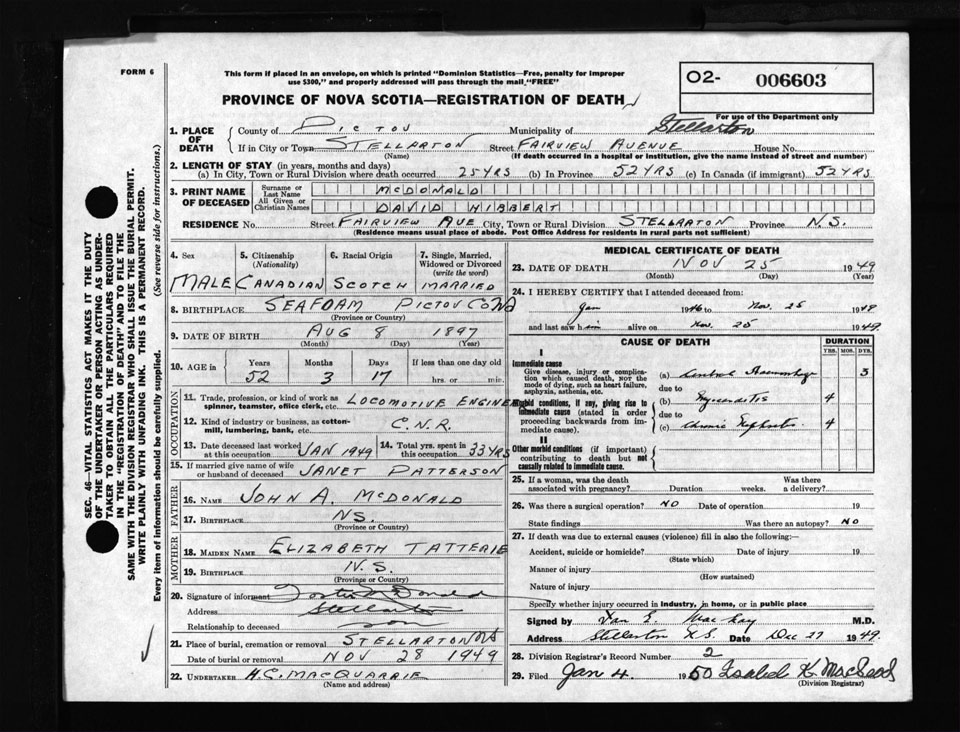 FORM 6
This form if placed in an envelope, on which is printed "Dominion Statistics—Free, penalty for improper
use $300," and properly addressed will pass through the mail "FREE"
O2- 006603
For use of the Department only
PROVINCE OF NOVA SCOTIA—REGISTRATION OF DEATH
SEC. 46—VITAL STATISTICS ACT MAKES IT THE DUTY
OF THE UNDERTAKER OR PERSON ACTING AS UNDER-
TAKER TO OBTAIN ALL THE PARTICULARS REQUIRED
IN THE "REGISTRATION OF DEATH" AND TO FILE THE
SAME WITH THE DIVISION REGISTRAR WHO SHALL ISSUE THE BURIAL PERMIT.
WRITE PLAINLY WITH UNFADING INK. THIS IS A PERMANENT RECORD.
Every item of information should be carefully supplied. (See reverse side for instructions.)
1. PLACE OF DEATH
County of PICTOU Municipality of Stellarton
If in City or Town STELLARTON Street FAIRVIEW AVENUE House No.
(Name) (If death occurred in a hospital or institution, give the name instead of street and number)
2. LENGTH OF STAY (in years, months and days)
(a) In City, Town or Rural Division where death occurred 25 YRS (b) In Province 52 YRS (c) In Canada (if immigrant) 52 YRS
3. PRINT NAME OF DECEASED
Surname or Last Name MCDONALD
All Given or Christian Names DAVID HIBBERT
RESIDENCE No. Street FAIRVIEW AVE City, Town or Rural Division STELLARTON Province N.S.
(Residence means usual place of abode. Post Office Address for residents in rural parts not sufficient)
4. Sex
MALE
5. Citizenship
(Nationality)
CANADIAN
6. Racial Origin
SCOTCH
7. Single, Married,
Widowed or Divorced
(write the word)
MARRIED
8. BIRTHPLACE SEAFOAM PICTOU CO NS
(Province or Country)
9. DATE OF BIRTH AUG 8 1897
(Month) (Day) (Year)
10. AGE in
Years Months Days If less than one day old
52 3 17 hrs. or min.
OCCUPATION
11. Trade, profession, or kind of work as
spinner, teamster, office clerk, etc. LOCOMOTIVE ENGINEER
12. Kind of industry or business, as cotton-
mill, lumbering, bank, etc. C.N.R.
13. Date deceased last worked
at this occupation JAN 1949
14. Total yrs. spent in
this occupation 33 YRS
15. If married give name of wife
or husband of deceased JANET PATTERSON
FATHER
16. NAME JOHN A. MCDONALD
17. BIRTHPLACE NS.
(Province or Country)
MOTHER
18. MAIDEN NAME ELIZABETH TATTERIE
19. BIRTHPLACE N.S.
(Province or Country)
20. Signature of informant McDonald
Address Stellarton
Relationship to deceased son
21. Place of burial, cremation or removal STELLARTON NS
Date of burial or removal NOV 28 1949
22. UNDERTAKER H.C. MACQUARRIE
(Name and address)
MEDICAL CERTIFICATE OF DEATH
23. DATE OF DEATH NOV 25 1949
(Month) (Day) (Year)
24. I HEREBY CERTIFY that I attended deceased from:
Jan 1946 to Nov. 25 1949
and last saw him alive on Nov. 25 1949.
CAUSE OF DEATH DURATION
YRS. MOS. DYS.
I
Immediate cause
Give disease, injury or complica-
tion which caused death, NOT the
mode of dying, such as heart failure,
asphyxia, asthenia, etc.
(a) Cerebral Haemorrhage 3
due to
Morbid conditions, if any, giving rise to
immediate cause (stated in order
proceeding backwards from im-
mediate cause).
(b) Myocarditis 4
due to
(c) Chronic Nephritis 4
II
Other morbid conditions (if important)
contributing to death but not
causally related to immediate cause.
25. If a woman, was the death
associated with pregnancy? Duration weeks. Was there
a delivery?
26. Was there a surgical operation? NO Date of operation 19
State findings Was there an autopsy? NO
27. If death was due to external causes (violence) fill in also the following:—
Accident, suicide or homicide? Date of injury 19
(State which)
Manner of injury
(How sustained)
Nature of injury
Specify whether injury occurred in industry, in home, or in public place
Signed by MacKay M.D.
Address Stellarton N.S. Date Dec 27 1949.
28. Division Registrar's Record Number 2
29. Filed Jan 4. 1950 Isabel K. MacLeod
(Division Registrar)